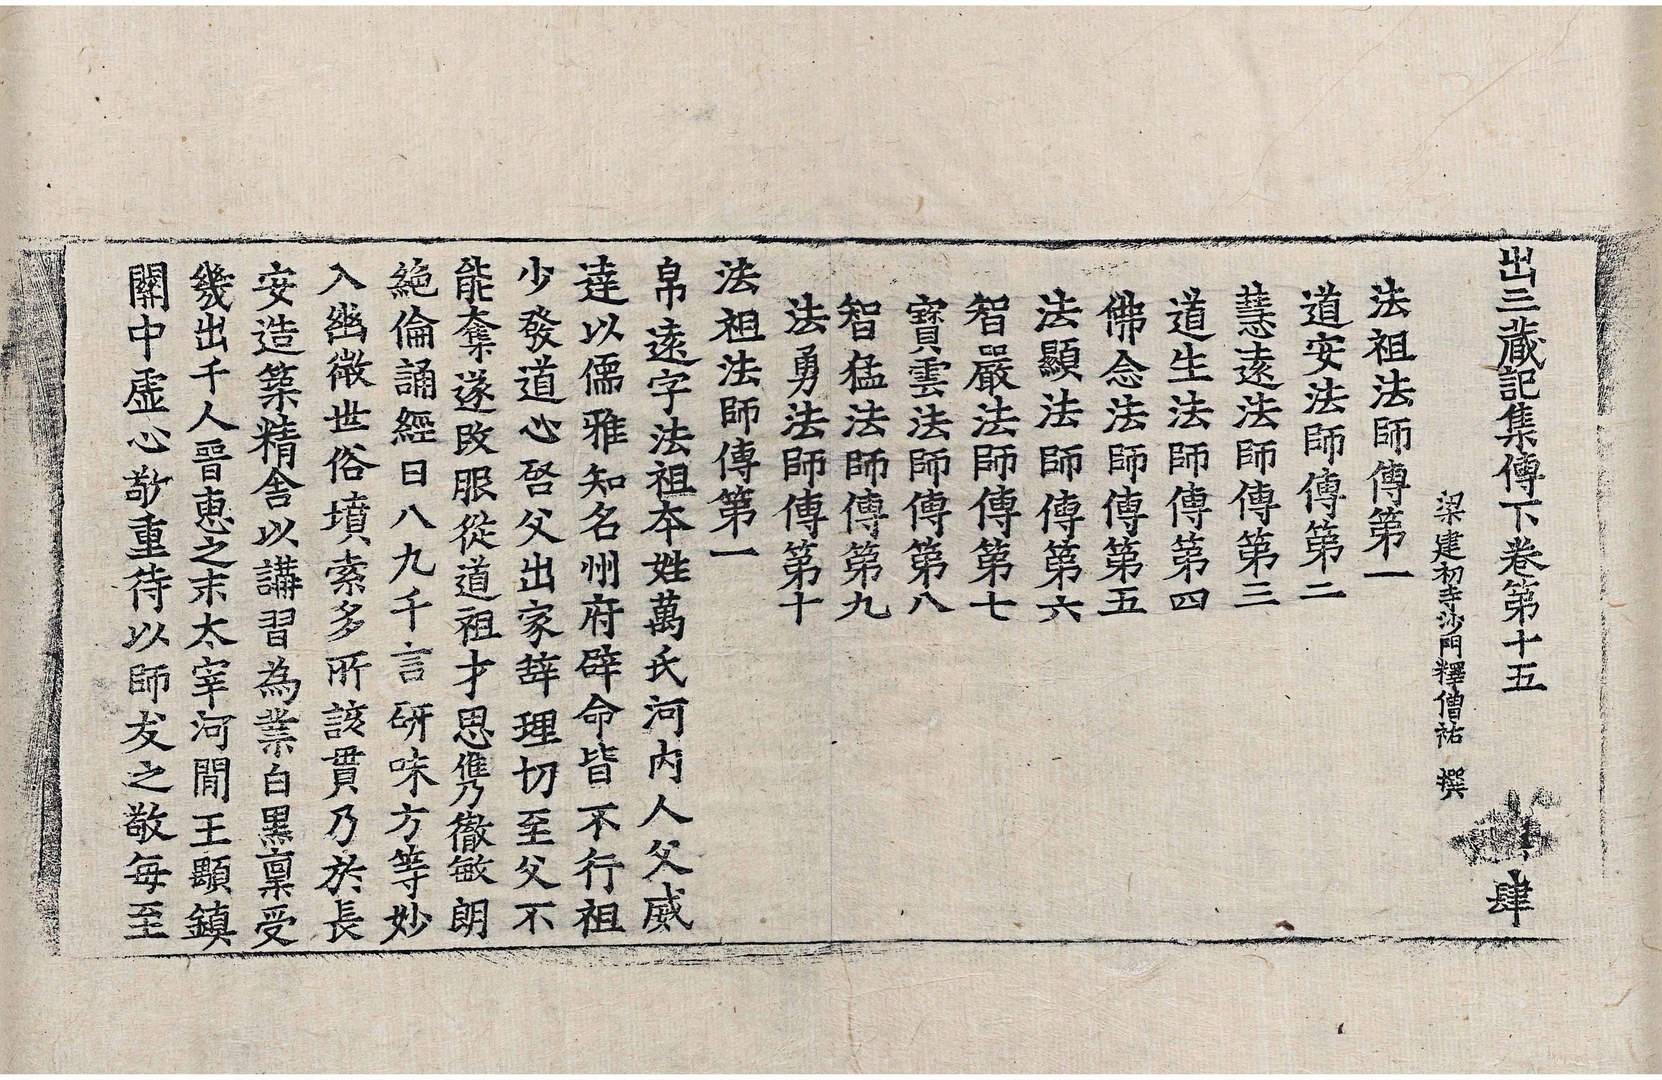 出三藏記集傳下卷第十五 肆
梁建初寺沙門釋僧祐 撰
法祖法師傳第一
道安法師傳第二
慧遠法師傳第三
道生法師傳第四
佛念法師傳第五
法顯法師傳第六
智嚴法師傳第七
寶雲法師傳第八
智猛法師傳第九
法勇法師傳第十
法祖法師傳第一
帛遠字法祖本姓萬氏河內人父威
達以儒雅知名州府辟命皆不行祖
少發道心啓父出家辝理切至父不
能奪遂改服從道祖才思儁徹敏朗
絕倫誦經日八九千言研味方等妙
入幽微世俗墳索多所該貫乃於長
安造築精舍以講習為業白黑稟受
幾出千人晉惠之末太宰河閒王顒鎮
關中虛心敬重待以師友之敬每至